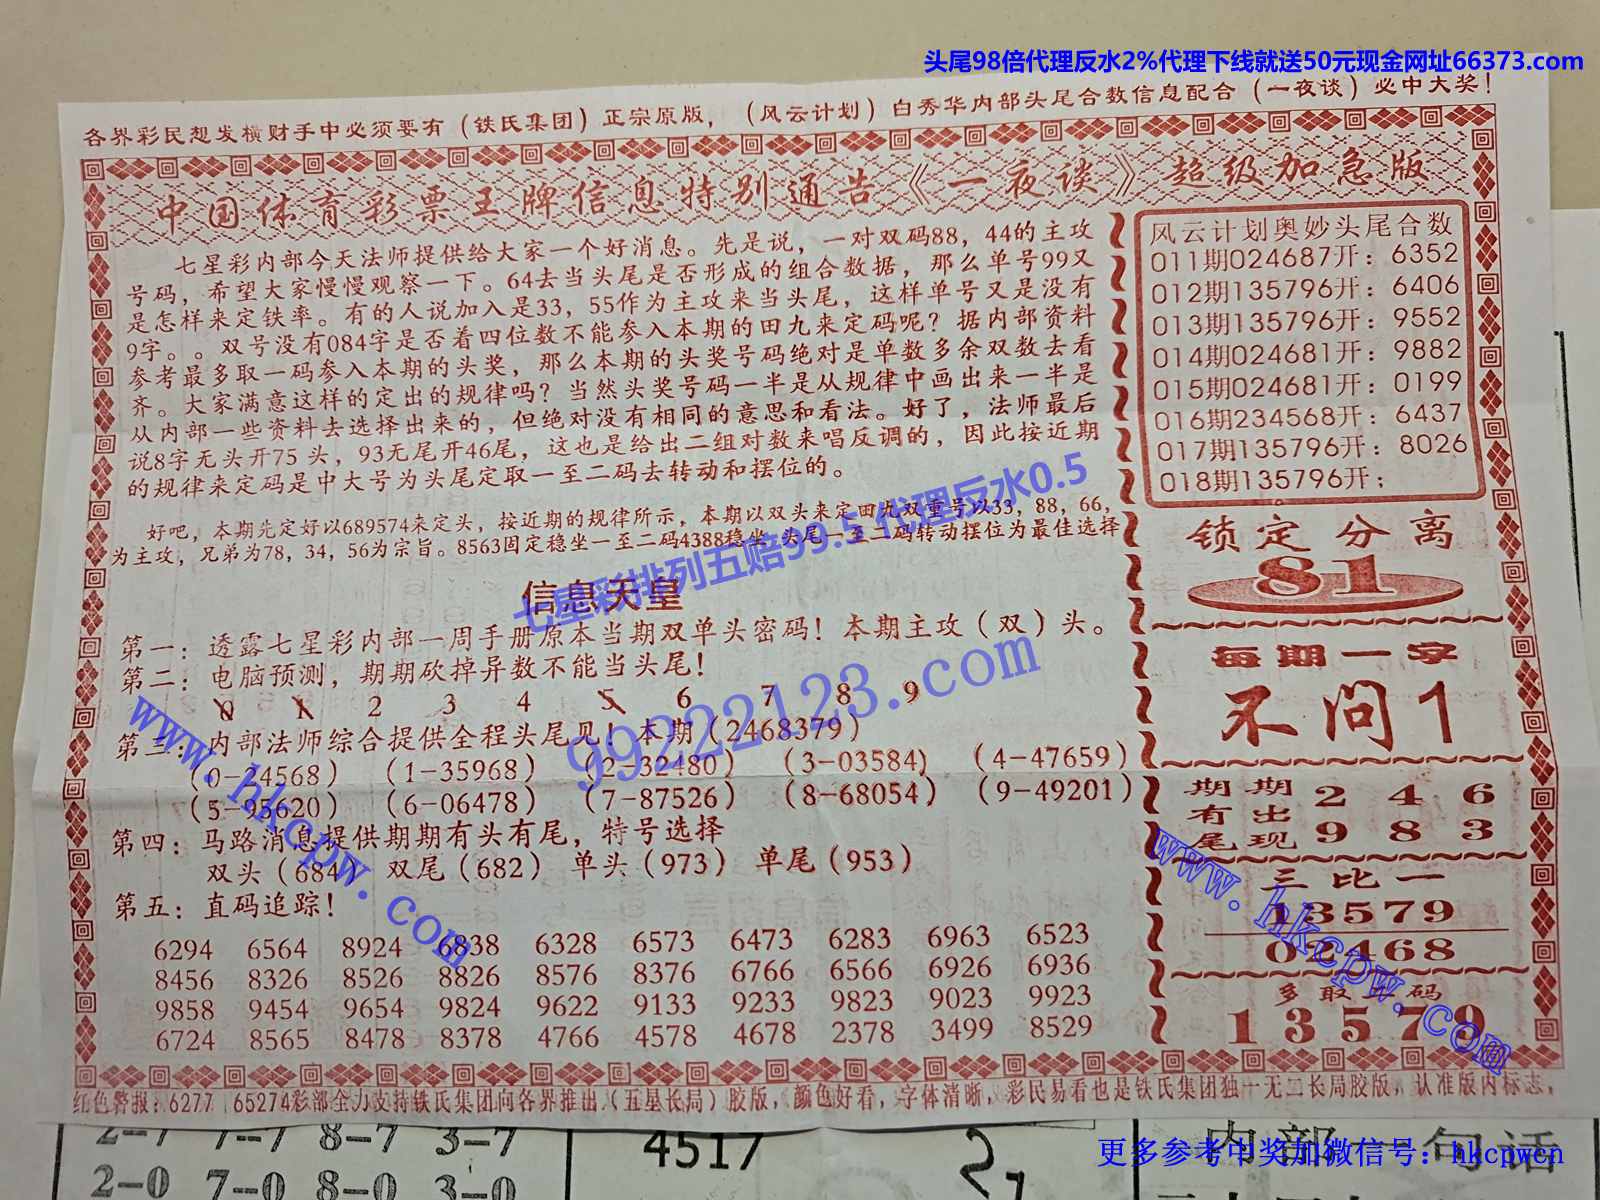 头尾98倍代理反水2%代理下线就送50元现金网址66373.com
各界彩民想发横财手中必须要有（铁氏集团）正宗原版，（风云计划）白秀华内部头尾合数信息配合（一夜谈）必中大奖！
中国体育彩票王牌信息特别通告《一夜谈》超级加急版
七星彩内部今天法师提供给大家一个好消息。先是说，一对双码88，44的主攻
号码，希望大家慢慢观察一下。64去当头尾是否形成的组合数据，那么单号99又
是怎样来定铁率。有的人说加入是33，55作为主攻来当头尾，这样单号又是没有
9字。。双号没有084字是否着四位数不能参入本期的田九来定码呢？据内部资料
参考最多取一码参入本期的头奖，那么本期的头奖号码绝对是单数多余双数去看
齐。大家满意这样的定出的规律吗？当然头奖号码一半是从规律中画出来一半是
从内部一些资料去选择出来的，但绝对没有相同的意思和看法。好了，法师最后
说8字无头开75 头，93无尾开46尾，这也是给出二组对数来唱反调的，因此按近期
的规律来定码是中大号为头尾定取一至二码去转动和摆位的。
好吧，本期先定好以689574来定头，按近期的规律所示，本期以双头来定田九双重号以33，88，66，
为主攻，兄弟为78，34，56为宗旨。8563固定稳坐一至二码4388稳坐 头尾一至二码转动摆位为最佳选择
七星彩排列五赔99.5 代理反水0.5
信息天皇
第一：透露七星彩内部一周手册原本当期双单头密码！本期主攻（双）头。
第二：电脑预测，期期砍掉异数不能当头尾！
0 1 2 3 4 5 6 7 8 9
第三：内部法师综合提供全程头尾见！本期（2468379）
（0-24568） （1-35968） （2-32480） （3-03584） （4-47659）
（5-95620） （6-06478） （7-87526） （8-68054） （9-49201）
第四：马路消息提供期期有头有尾，特号选择
双头（684） 双尾（682） 单头（973） 单尾（953）
第五：直码追踪！
6294 6564 8924 6838 6328 6573 6473 6283 6963 6523
8456 8326 8526 8826 8576 8376 6766 6566 6926 6936
9858 9454 9654 9824 9622 9133 9233 9823 9023 9923
6724 8565 8478 8378 4766 4578 4678 2378 3499 8529
风云计划奥妙头尾合数
011期024687开：6352
012期135796开：6406
013期135796开：9552
014期024681开：9882
015期024681开：0199
016期234568开：6437
017期135796开：8026
018期135796开；
锁定分离
81
每期一字
不问1
期期 2 4 6
有出
尾现 9 8 3
三比一
13579
02468
多取五码
13579
99222123.com
www.hkcpw.com
www.hkcpw.com
红色警报：6277 65274彩部全力支持铁氏集团向各界推出（五星长局）胶版，颜色好看，字体清晰，彩民易看也是铁氏集团独一无二长局胶版，认准版内标志，
2-7 7-7 8-7 3-7 4517
2-0 7-0 8-0 3-0
内部一句话
更多参考中奖加微信号：hkcpwcn